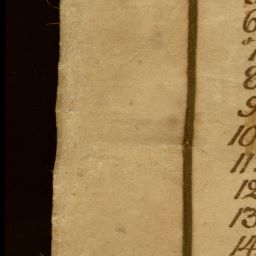 6
7
8
9
10
11.
12
13
14